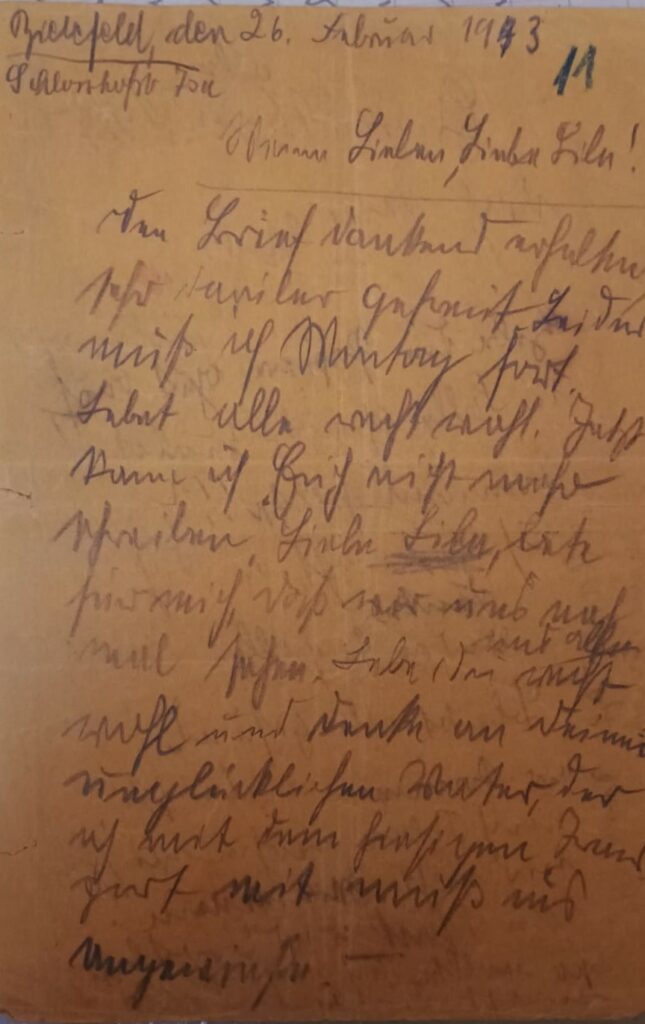 Bielefeld, den 26. Februar 1943
11
Schlosshofstr 73a
Meine Lieben, Liebe Lila!
Den Brief dankend erhalten
sehr darüber gefreut. Leider
muß ich Montag fort.
Lebet alle recht wohl. Jetzt
kann ich Euch nicht mehr
schreiben, Liebe Lila, bete
für mich, daß wir uns noch
mal sehen. Lebe, du recht
uns alle
wohl und denke an Deinen
unglücklichen Vater, der
ich mit dem hiesigen Trans
port mit muß ins
Ungewisse. —